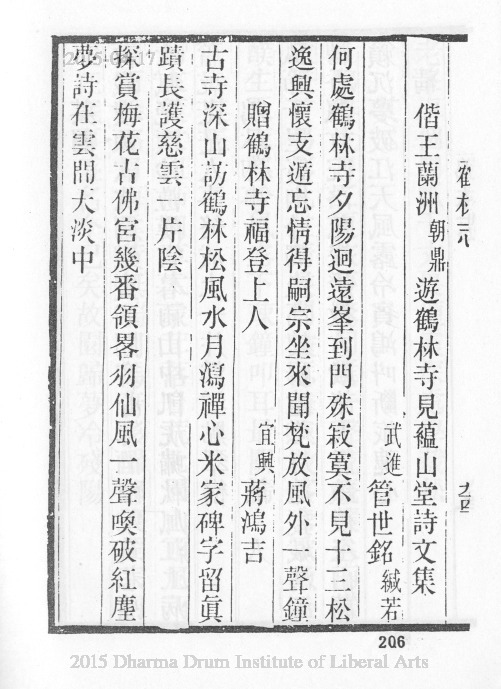 偕王蘭洲朝鼎遊鶴林寺見蘊山堂詩文集
武進管世銘緘若
何處鶴林寺夕陽迴遠峯到門殊寂寞不見十三松
逸興懷支遁忘情得嗣宗坐來聞梵放風外一聲鐘
贈鶴林寺福登上人
宜興蔣鴻吉
古寺深山訪鶴林松風水月瀉禪心米家碑字留眞
蹟長護慈雲一片陰
探賞梅花古佛宮幾番領畧羽仙風一聲喚破紅塵
夢詩在雲間大淡中
206
2015 Dharma Drum Institute of Liberal Arts